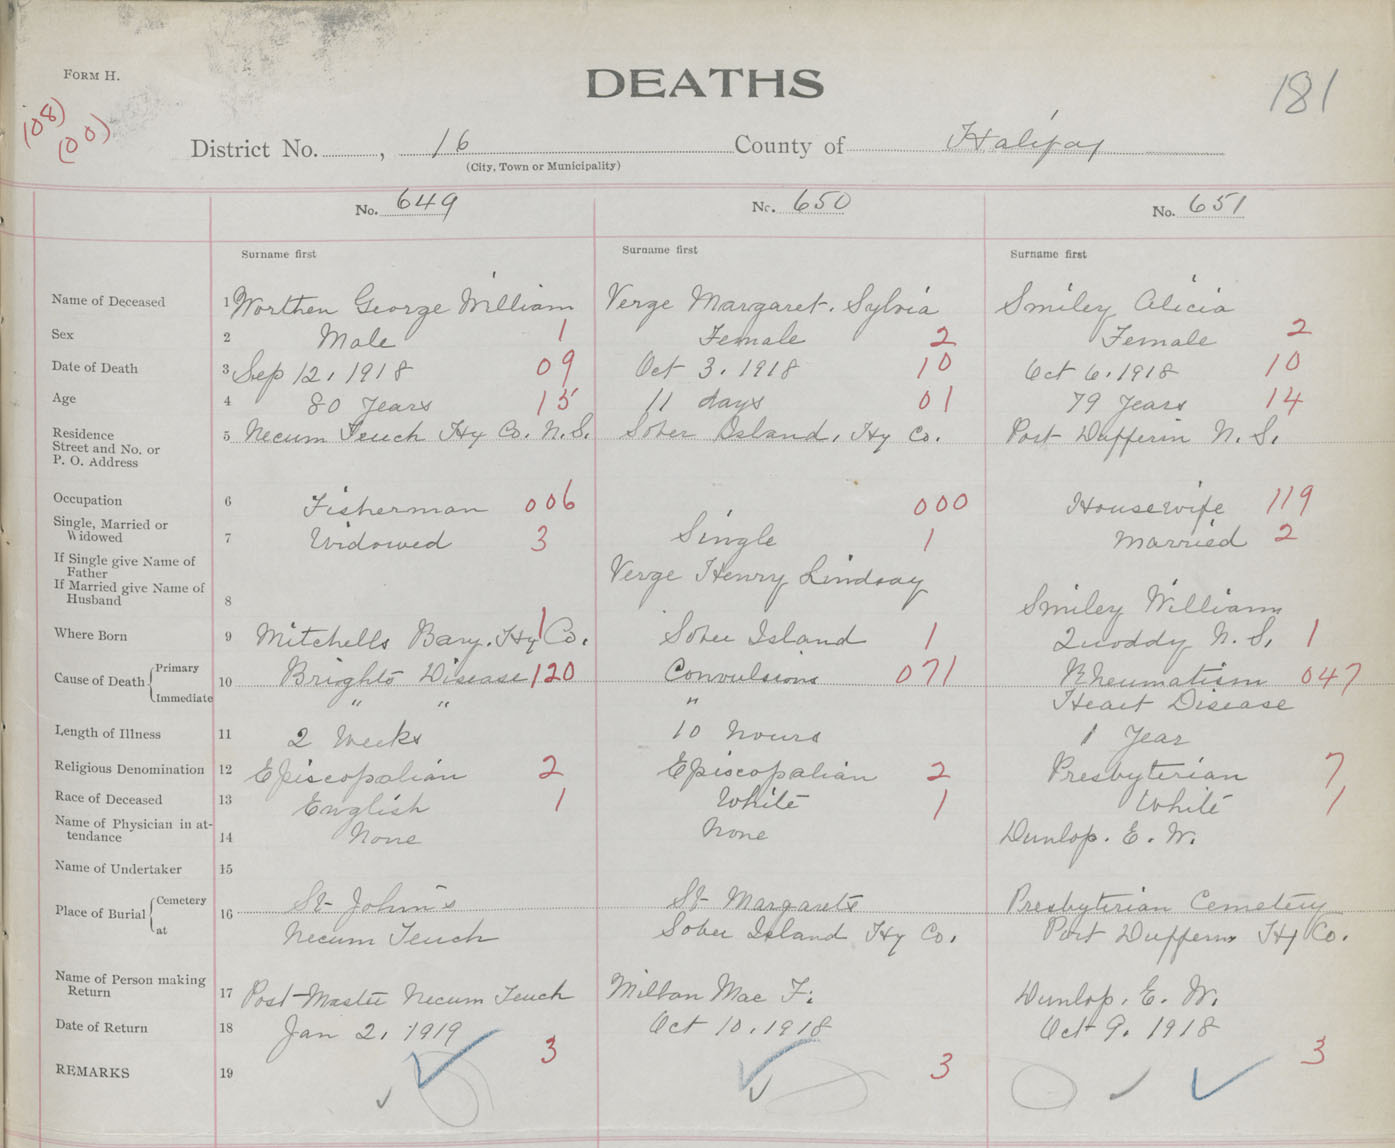 FORM H.
DEATHS
181
(08)
(00)
District No. , 16 County of Halifax
(City, Town or Municipality)
No. 649 No. 650 No. 651
Surname first Surname first Surname first
Name of Deceased 1 Worthen George William Verge Margaret. Sylvia Smiley Alicia
Sex 2 Male 1 Female 2 Female 2
Date of Death 3 Sep 12, 1918 09 Oct 3. 1918 10 Oct 6. 1918 10
Age 4 80 Years 15 11 days 01 79 Years 14
Residence 5 Necum Teuch Hx Co. N.S. Sober Island, Hx Co. Port Dufferin N. S.
Street and No. or
P. O. Address
Occupation 6 Fisherman 006 000 Housewife 119
Single, Married or
Widowed 7 Widowed 3 Single 1 Married 2
If Single give Name of
Father Verge Henry Lindsay
If Married give Name of
Husband 8 Smiley William
Where Born 9 Mitchells Bay. Hx Co. 1 Sober Island 1 Quoddy N. S. 1
Cause of Death Primary 10 Brights Disease 120 Convulsions 071 Rheumatism 047
Immediate " " " Heart Disease
Length of Illness 11 2 Weeks 10 hours 1 Year
Religious Denomination 12 Episcopalian 2 Episcopalian 2 Presbyterian 7
Race of Deceased 13 English 1 White 1 White 1
Name of Physician in at-
tendance 14 None None Dunlop. E. W.
Name of Undertaker 15
Place of Burial Cemetery 16 St John's St Margarets Presbyterian Cemetery
at Necum Teuch Sober Island Hx Co. Port Dufferin Hx Co.
Name of Person making
Return 17 Post-Master Necum Teuch Milton Mac F. Dunlop. E. W.
Date of Return 18 Jan 2, 1919 Oct 10, 1918 Oct 9. 1918
3 3 3
REMARKS 19